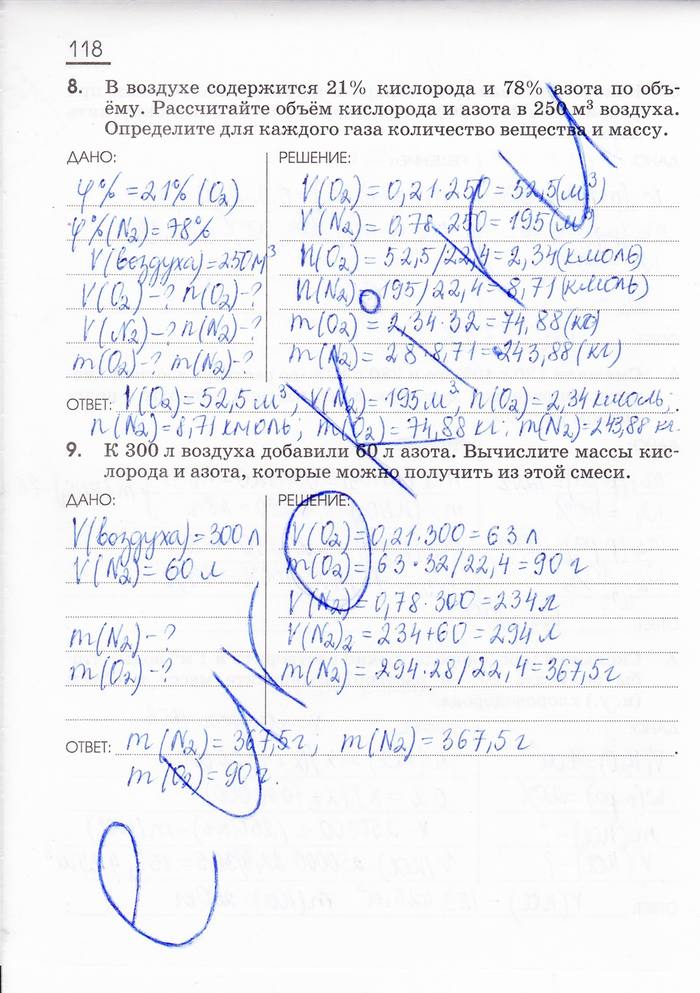 118
8. В воздухе содержится 21% кислорода и 78% азота по объ-
ёму. Рассчитайте объём кислорода и азота в 250 м³ воздуха.
Определите для каждого газа количество вещества и массу.
ДАНО:
φ% = 21% (O₂)
φ%(N₂) = 78%
V(воздуха) = 250 м³
V(O₂) - ? n(O₂) - ?
V(N₂) - ? n(N₂) - ?
m(O₂) - ? m(N₂) - ?
РЕШЕНИЕ:
V(O₂) = 0,21·250 = 52,5 (м³)
V(N₂) = 0,78·250 = 195 (м³)
n(O₂) = 52,5/22,4 = 2,34 (кмоль)
n(N₂) = 195/22,4 = 8,71 (кмоль)
m(O₂) = 2,34·32 = 74,88 (кг)
m(N₂) = 28·8,71 = 243,88 (кг)
ОТВЕТ: V(O₂) = 52,5 м³, V(N₂) = 195 м³, n(O₂) = 2,34 кмоль;
n(N₂) = 8,71 кмоль; m(O₂) = 74,88 кг; m(N₂) = 243,88 кг.
9. К 300 л воздуха добавили 60 л азота. Вычислите массы кис-
лорода и азота, которые можно получить из этой смеси.
ДАНО:
V(воздуха) = 300 л
V(N₂) = 60 л
m(N₂) - ?
m(O₂) - ?
РЕШЕНИЕ:
V(O₂) = 0,21·300 = 63 л
m(O₂) = 63·32/22,4 = 90 г
V(N₂) = 0,78·300 = 234 л
V(N₂)₂ = 234+60 = 294 л
m(N₂) = 294·28/22,4 = 367,5 г
ОТВЕТ: m(N₂) = 367,5 г; m(N₂) = 367,5 г
m(O₂) = 90 г.